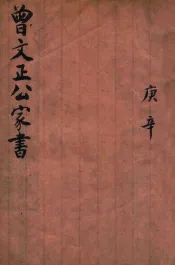 曾文正公家書
庚辛